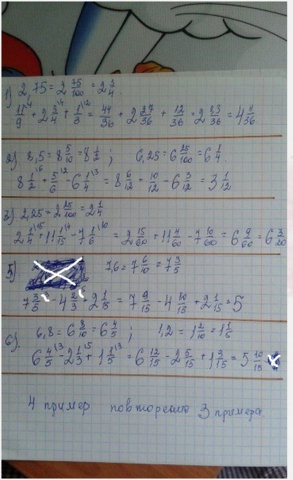 1) 2,75 = 2 75/100 = 2 3/4
11/9 + 2 3/4 + 1/3 = 44/36 + 2 27/36 + 12/36 = 2 83/36 = 4 11/36
2) 8,5 = 8 5/10 = 8 1/2 ; 6,25 = 6 25/100 = 6 1/4
8 1/2 + 5/6 - 6 1/4 = 8 6/12 + 10/12 - 6 3/12 = 3 1/12
3) 2,25 = 2 25/100 = 2 1/4
2 1/4 + 11 1/15 - 7 1/10 = 2 15/60 + 11 4/60 - 7 6/60 = 6 9/60 = 6 3/20
5) 7,6 = 7 6/10 = 7 3/5
7 3/5 - 4 2/3 + 2 1/15 = 7 9/15 - 4 10/15 + 2 1/15 = 5
6) 6,8 = 6 8/10 = 6 4/5 ; 1,2 = 1 2/10 = 1 1/5
6 4/5 - 2 1/3 + 1 1/5 = 6 12/15 - 2 5/15 + 1 3/15 = 5 10/15
4 пример повторению 3 примера